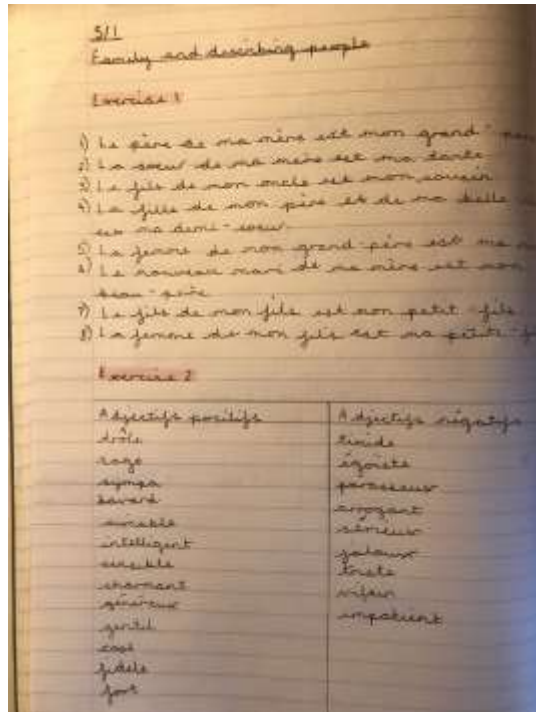 5/1
Family and describing people
Exercise 1
1) Le père de ma mère est mon grand-
2) La soeur de ma mère est ma tante
3) Le fils de mon oncle est mon cousin
4) La fille de mon père et de ma belle
est ma demi-soeur
5) La femme de mon grand-père est ma
6) Le nouveau mari de ma mère est mon
beau-père
7) Le fils de mon fils est mon petit-fils
8) La femme de mon fils est ma petite-
Exercise 2
Adjectifs positifs Adjectifs négatifs
drôle timide
sage égoïste
sympa paresseux
bavard arrogant
aimable sérieux
intelligent jaloux
sensible triste
charmant vilain
généreux impatient
gentil
cool
fidèle
fort